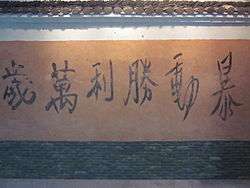 暴動勝利萬歲